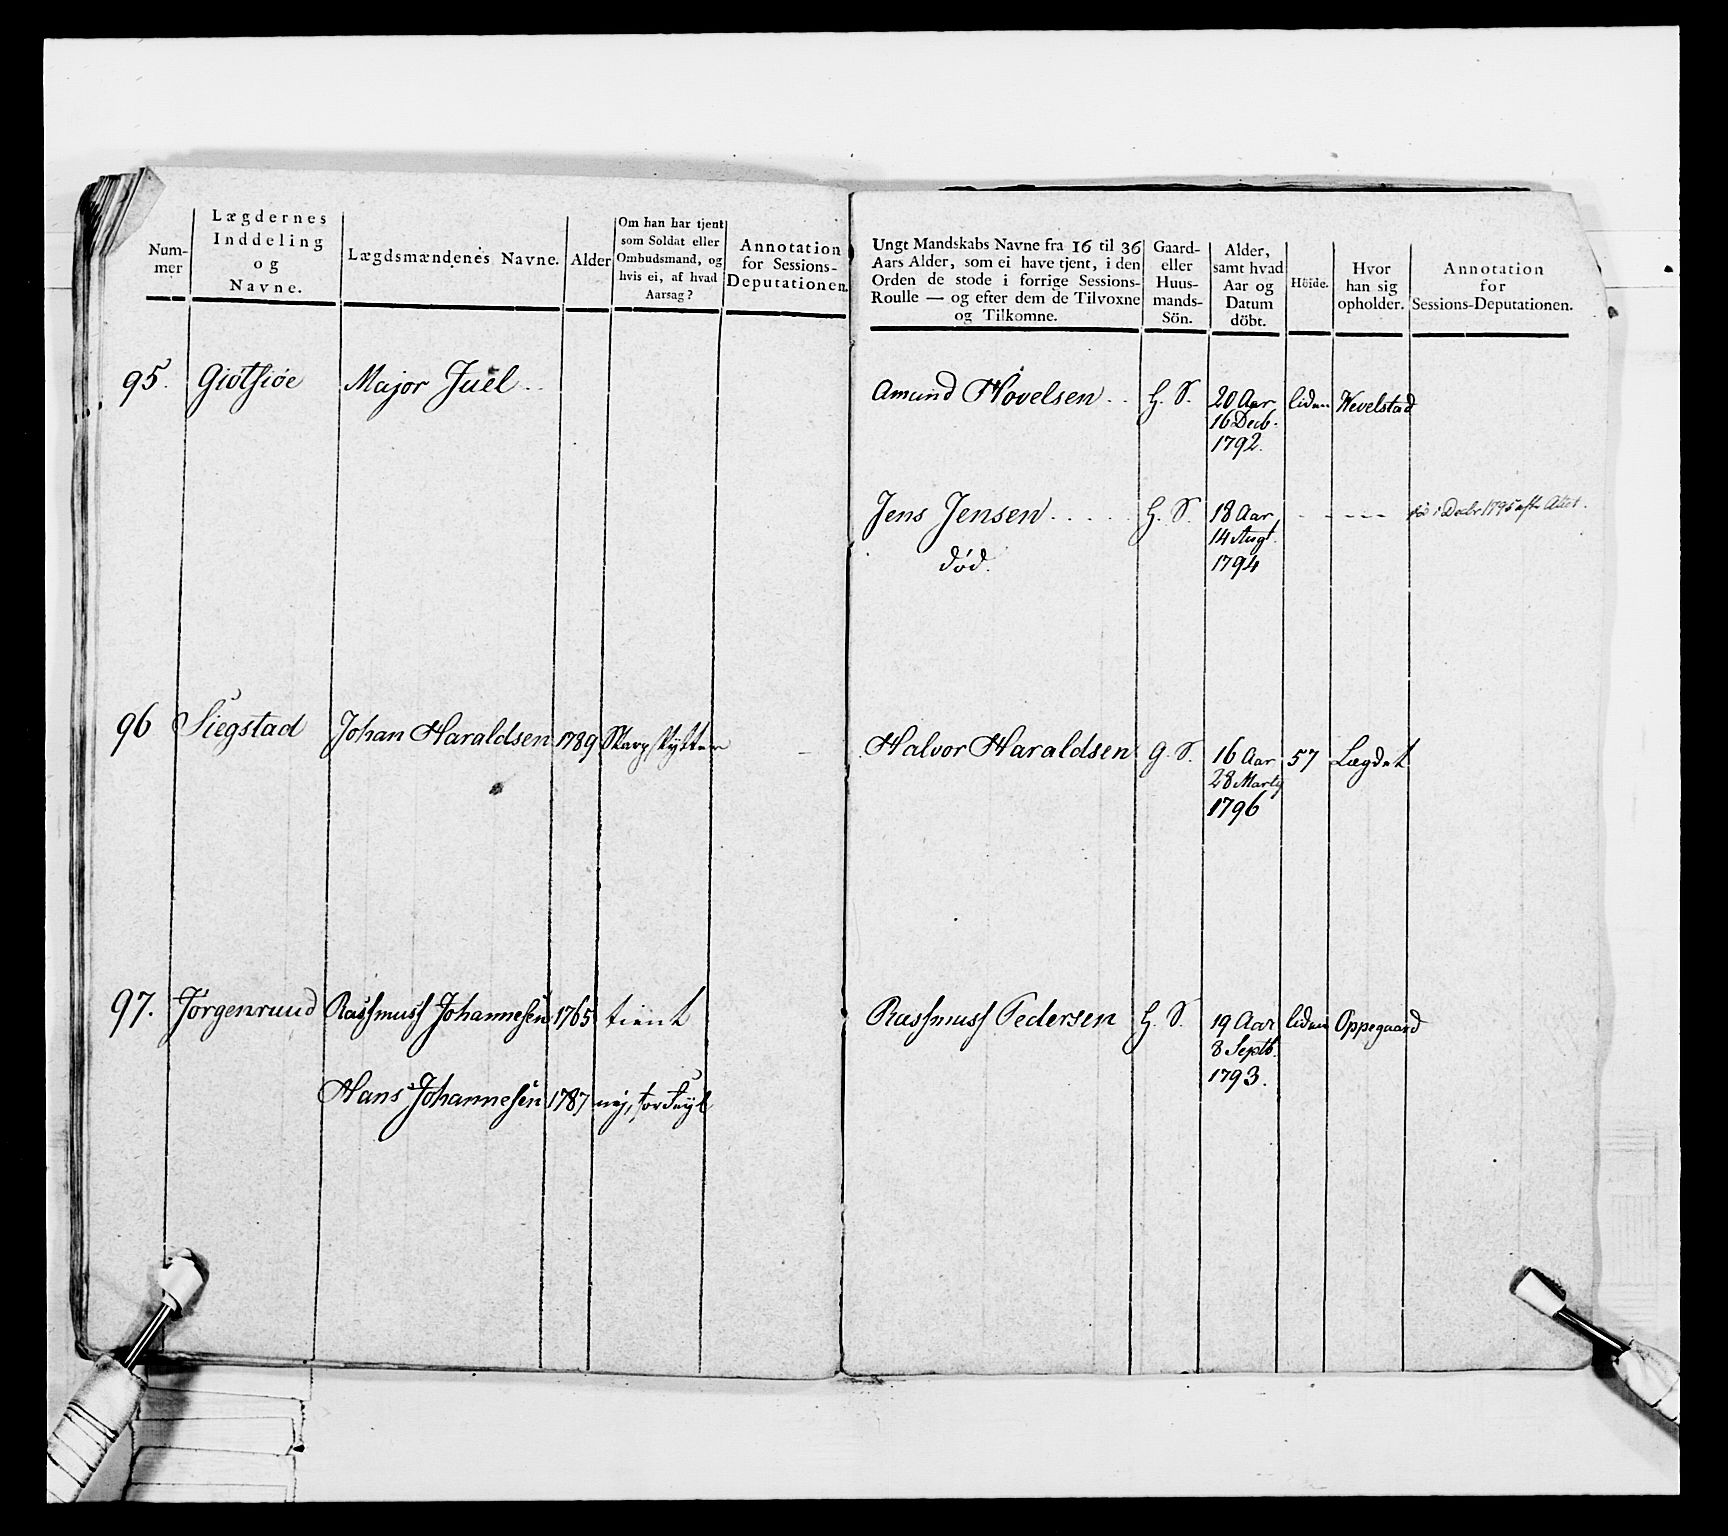 Num-
mer
Lægdernes
Inddeling
og
Navne.
Lægdsmændenes Navne.
Alder
Om han har tjent
som Soldat eller
Ombudsmand, og
hvis ei, af hvad
Aarsag?
Annotation
for Sessions-
Deputationen.
Ungt Mandskabs Navne fra 16 til 36
Aars Alder, som ei have tjent, i den
Orden de stode i forrige Sessions-
Roulle — og efter dem de Tilvoxne
og Tilkomne.
Gaard-
eller
Huus-
mands-
Sön.
Alder,
samt hvad
Aar og
Datum
döbt.
Höide.
Hvor
han sig
opholder.
Annotation
for
Sessions-Deputationen.
95. Giötsiöe Major Juel . .
Amund Hovelsen . . H. S. 20 Aar liden Wevelstad
16 Decb.
1792.
Jens Jensen . . . . . H. S. 18 Aar - - - - -
14 Augt.
død. 1794
96 Siegstad Johan Haraldsen 1789 Skarpskytter
Halvor Haraldsen G. S. 16 Aar 57 Lægdet
28 Martj
1796
97. Jørgenruud Rassmuss Johannesen 1765 tient
Rassmuss Pedersen H. S. 19 Aar liden Oppegaard
8 Septb.
1793.
Hans Johannesen 1787 nej,